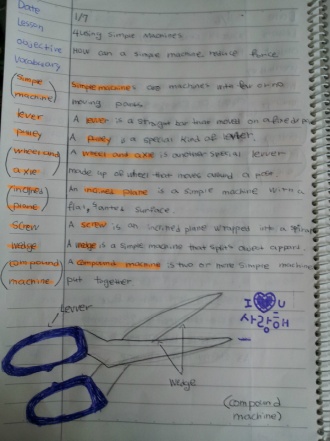 Date 1/7
Lesson 4 Using Simple Machines
Objective How can a simple machine reduce
Vocabulary
(simple machine) Simple machines are machines with few or no
moving
lever A lever is a straight bar that moves on a fixed
pulley A pulley is a special kind of lever.
(wheel and axle) A wheel and axle is another special lever
made up of wheel that moves around a post.
(inclined plane) An inclined plane is a simple machine with a
flat, slanted surface.
screw A screw is an inclined plane wrapped into a
wedge A wedge is a simple machine that splits apart
(compound machine) A compound machine is two or more simple machine
put together.
Lever
I U
사랑해
Wedge
(compound
machine)